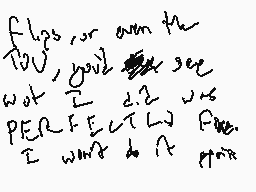 flips, or even the
TOU, you'd see
wot I did was
PERFECTLY fine.
I won't do it